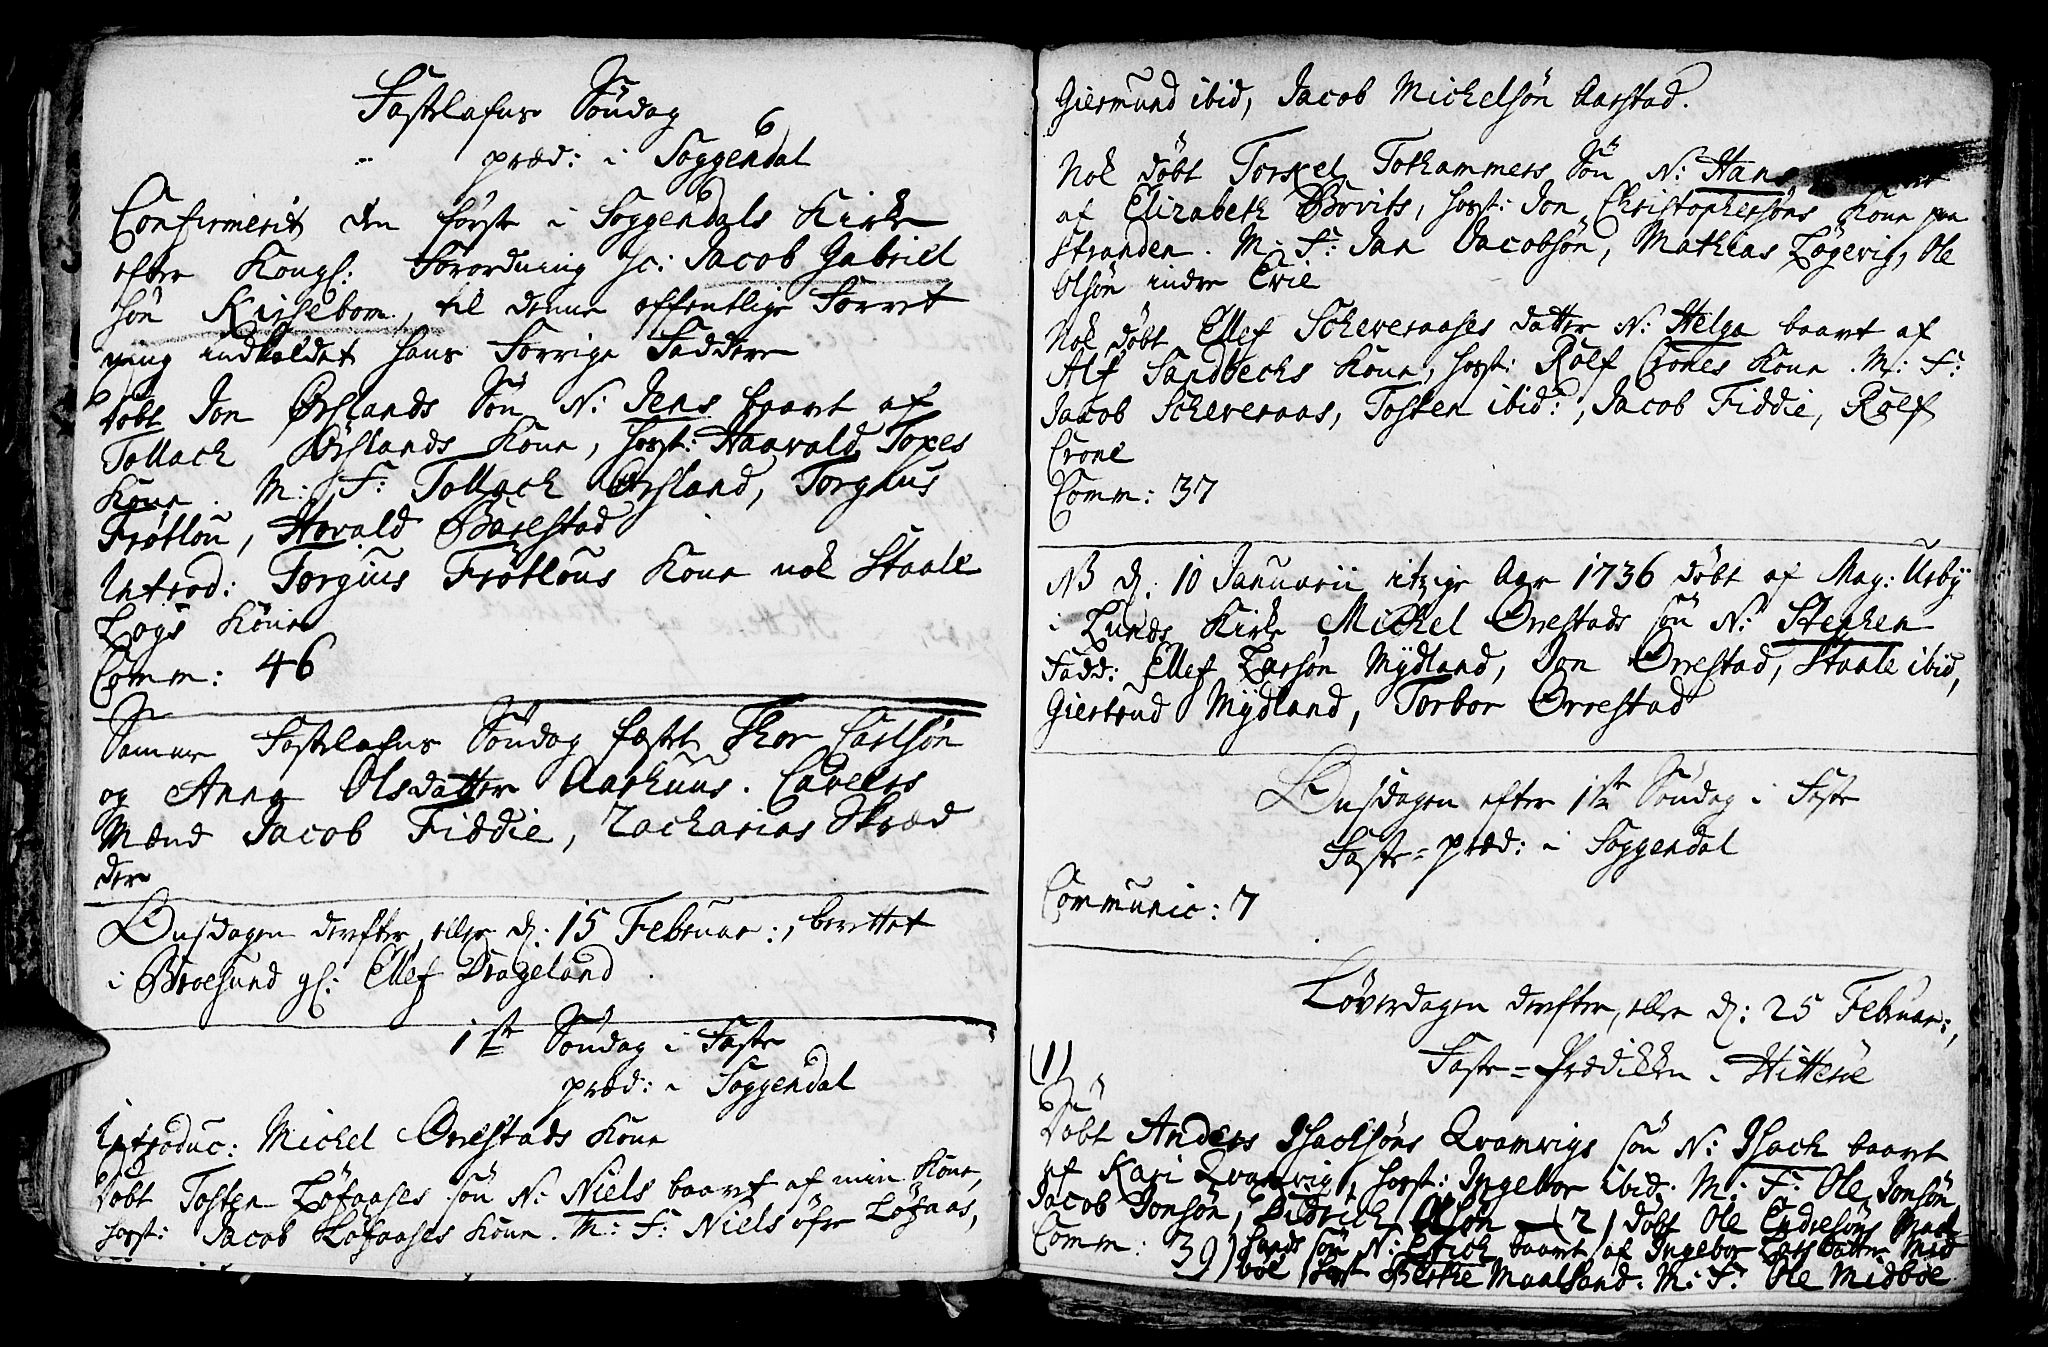 Fastelafns Søndag
præd: i Soggendal
Confirmerit den første i Soggendals Kirke
efter Kongl: Forordning sc: Jacob Gabriel
søn Kirsebom, til denne offentlige Forret
ning indkaldet hans Forrige Faddere
Døbt Jon Ørslands Søn N: Jens baaret af
Tollach Ørslands Kone, host: Haavald Toxes
Kone. M: F: Tollach Ørsland, Torgius
Frøtlou, Hovald Bærestad
Introd: Torgius Frøtlous Kone nok Staale
Logs Kone
Comm: 46
Samme Fastelafns Søndag fæstet Thor Carlsøn
og Anna Olsdatter Aarhuus. Cavells
Mænd Jacob Fiddie, Zacharias Skræd
der
Onsdagen derefter, eller d: 15 Februar:, berettet
i Broesund gl: Ellef Drageland
1ste Søndag i Faste
præd: i Soggendal
Introduc: Michel Orrestads Kone
Døbt Tosten Løfaases søn N: Niels baaret af min Kone,
host: Jacob Løfaases Kone. M: F: Niels øfre Løfaas,
Giermund ibid, Jacob Michelsøn Aarstad.
Nok døbt Torkel Tothammers Søn N: Hans
af Elizabeth Bovits, host: Jon Christophersøns Kone paa
Stranden. M: F: Jan Jacobsøn, Mathias Løgevig, Ole
Olsøn indre Evie
Nok døbt Ellef Schereraases datter N: Helga baaret af
Alf Sandbechs Kone, host: Rolf Crones Kone. M: F:
Jacob Schereraas, Tosten ibid:, Jacob Fiddie, Rolf
Crone
Comm: 37
NB d: 10 Januarii itzige Aar 1736 døbt af Mag: Usby
i Lunds Kirke Michel Orrestads søn N: Stephen
Fadd: Ellef Larsøn Mydland, Jon Orrestad, Staale ibid,
Giertrud Mydland, Torbor Orrestad
Onsdagen efter 1ste Søndag i Faste
Faste-præd: i Soggendal
Communic: 7
Løverdagen derefter, eller d: 25 Februar:,
Faste-Prædiken i Hitterøe
(1)
Døbt Anders Isachsøns Qvamvigs søn N: Isach baaret
af Kari Qvamvig, host: Ingebor ibid: M: F: Ole Jonsøn
Jacob Jonsøn, Didrich Olsøn — (2) døbt Ole Eydesøns
Comm: 39) søn N: baaret af Ingebor Larsdatter Mid
bøe host Berthe Maalsand. M: F: Ole Midbøe